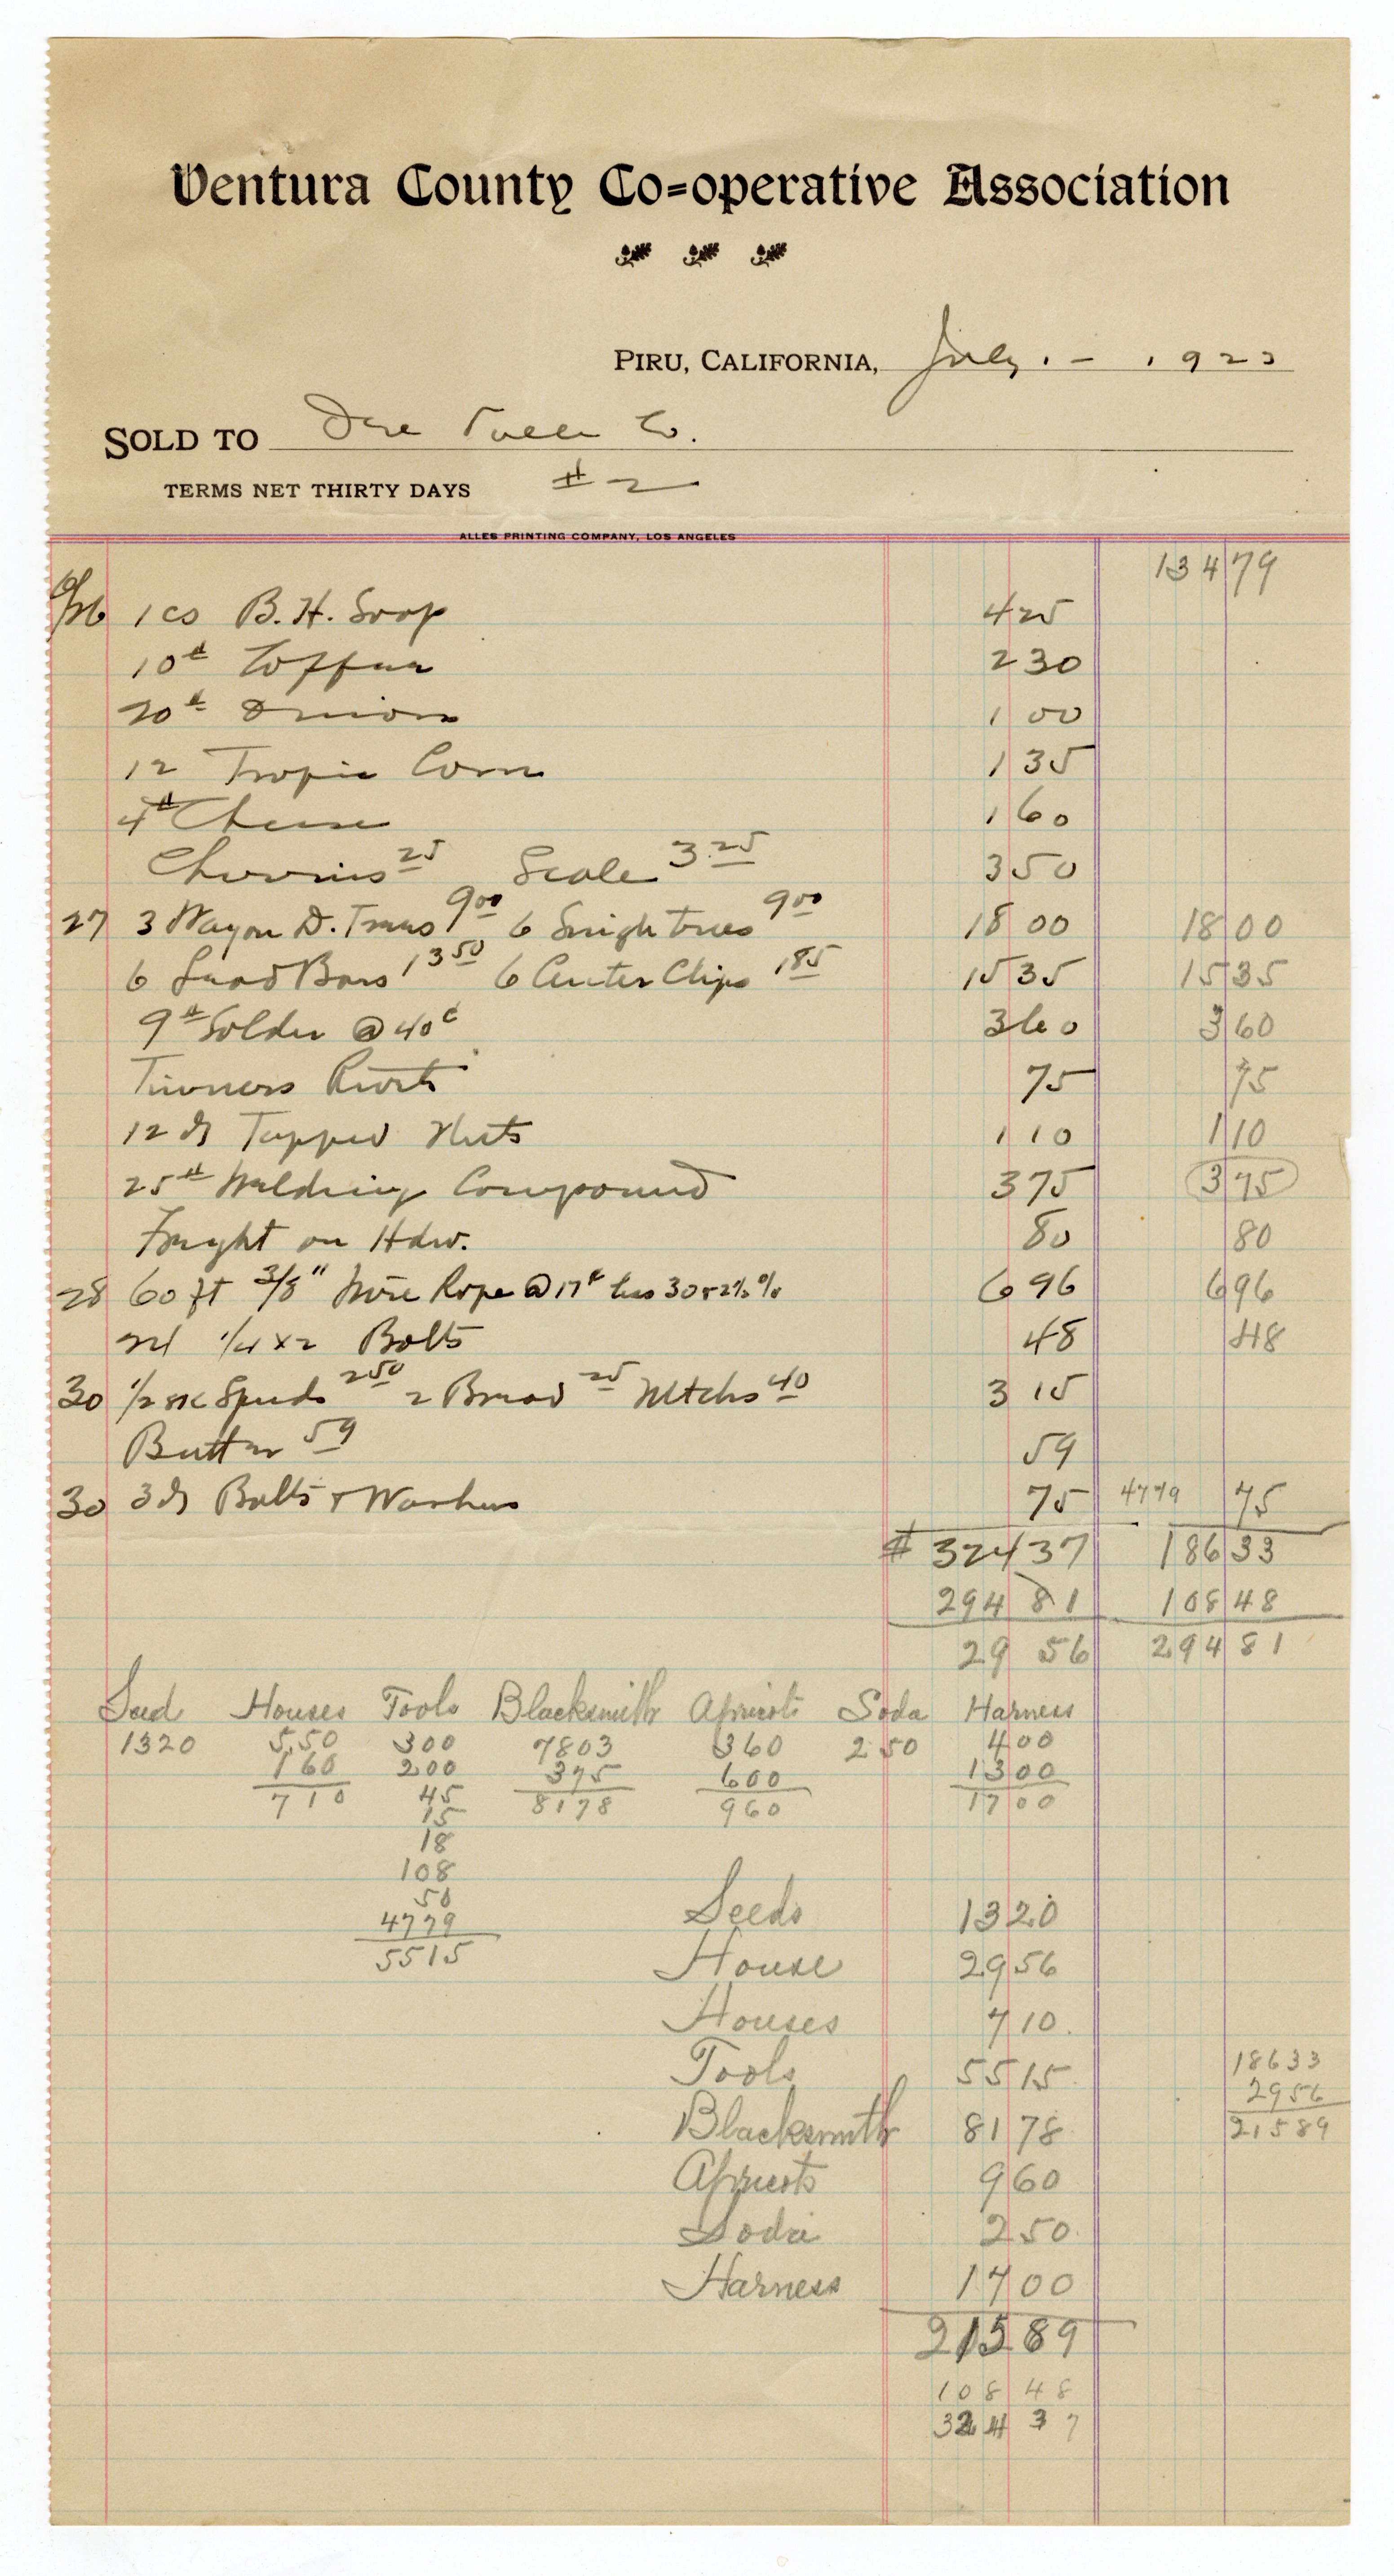 Ventura County Co=operative Association
PIRU, CALIFORNIA, July 1 - 192
SOLD TO Co.
TERMS NET THIRTY DAYS #2
ALLES PRINTING COMPANY, LOS ANGELES
134 79
6/26 1 cs B. H. Soap 4 25
10# Coffee 2 30
20# Onions 1 00
12 Tropic Corn 1 35
4# Cheese 1 60
25 Scale 3.25 3 50
27 3 Wagon D. Trees 9 00 6 Single trees 9 00 18 00 18 00
6 Lead Bars 13 50 6 Center Clips 1 85 15 35 15 35
9# Solder @ 40c 3 60 3 60
Tinners Rivets 75 75
12 Tapped Nuts 1 10 1 10
25# Welding Compound 3 75 3 75
Freight on Hdw. 80 80
28 60 ft 3/8" Wire Rope @ 17c less 30 & 2½ % 6 96 6 96
24 1/4 x 2 Bolts 48 48
30 1/2 sk Spuds 2 50 2 Bread 25 Mtchs 40 3 15
Butter 59 59
30 3 Bolts & Washers 75 4779 75
# 324 37 186 33
294 81 108 48
29 56 294 81
Seed Houses Tools Blacksmith Apricots Soda Harness
1320 5.50 300 7803 360 2 50 400
1 60 200 375 600 1300
7 10 45 8178 960 1700
15
18
108
50
4779
5515
Seeds 1320
House 2956
Houses 710.
Tools 5515. 18633
2956
Blacksmith 8178 21589
Apricots 960
Soda 250.
Harness 1700
215 89
108 48
324 37